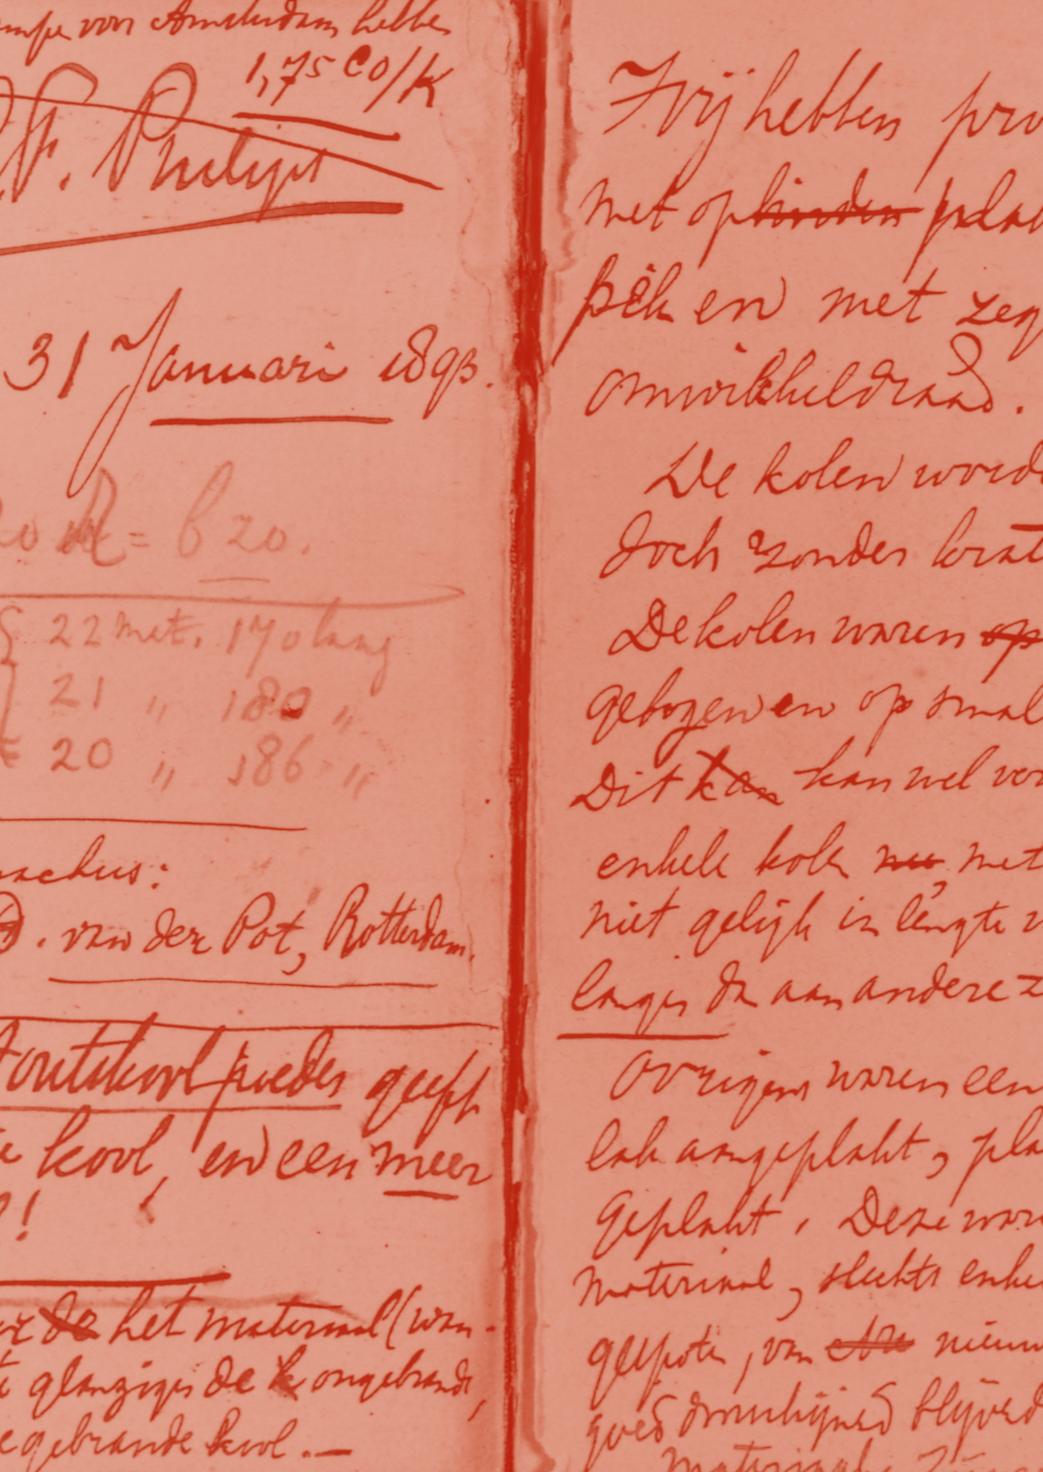 van Amsterdam hebben
1,75 Co/K
F. Philips
31 Januari 1893.
= 620.
22 met. 170 lang
21 " 180 "
20 " 186 "
D. van der Pot, Rotterdam.
houtskool poeder geeft
kool, en een meer
!
de het materiaal (wan-
glanziger de k ongebrande,
gebrande kool. —
Wij hebben pro
met opbinden plaa
pik en met zeg
omwikkeldraad.
De kolen worde
doch zonder krat
De kolen waren op
gebogen en op smal
Dit kan kan wel vor
enkele kolen met
niet gelijk in lengte
langer dan aan andere z
Overigens waren een
lak aangeplakt, pla
geplakt. Deze ware
materiaal, slechts enke
gespoten, van nieuw
goed omwikkeld blijvend
materiaal.